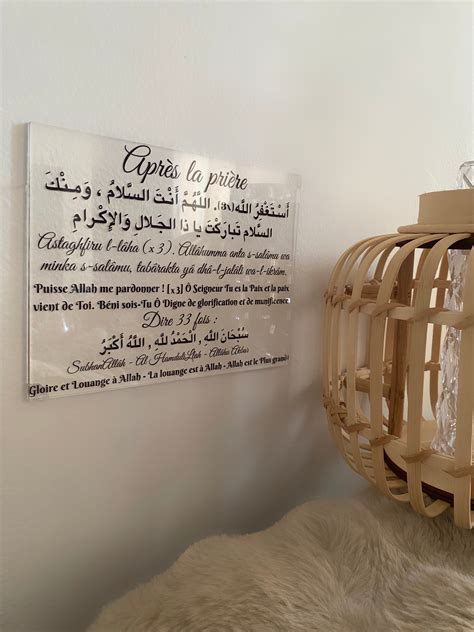 Après la prière
أَسْتَغْفِرُ اللَّه(3x). اللَّهُمَّ أَنْتَ السَّلامُ ، وَمِنْكَ
السَّلام تَبارَكْتَ يا ذا الجَلالِ وَالإِكْرام
Astaghfiru l-lâha (x 3). Allâhumma anta s-salâmu wa
minka s-salâmu, tabârakta yâ dhâ-l-jalâli wa-l-ikrâm.
Puisse Allah me pardonner ! [x3] Ô Seigneur Tu es la Paix et la paix
vient de Toi. Béni sois-Tu Ô Digne de glorification et de munificence.
Dire 33 fois :
سُبْحَانَ اللَّهِ , الْحَمْدُ للَّهِ , اللَّهُ أَكْبَرُ
SubhanAllâh - Al HamduliLlah - Allâhu Akbar
Gloire et Louange à Allah - La louange est à Allah - Allah est le Plus grand